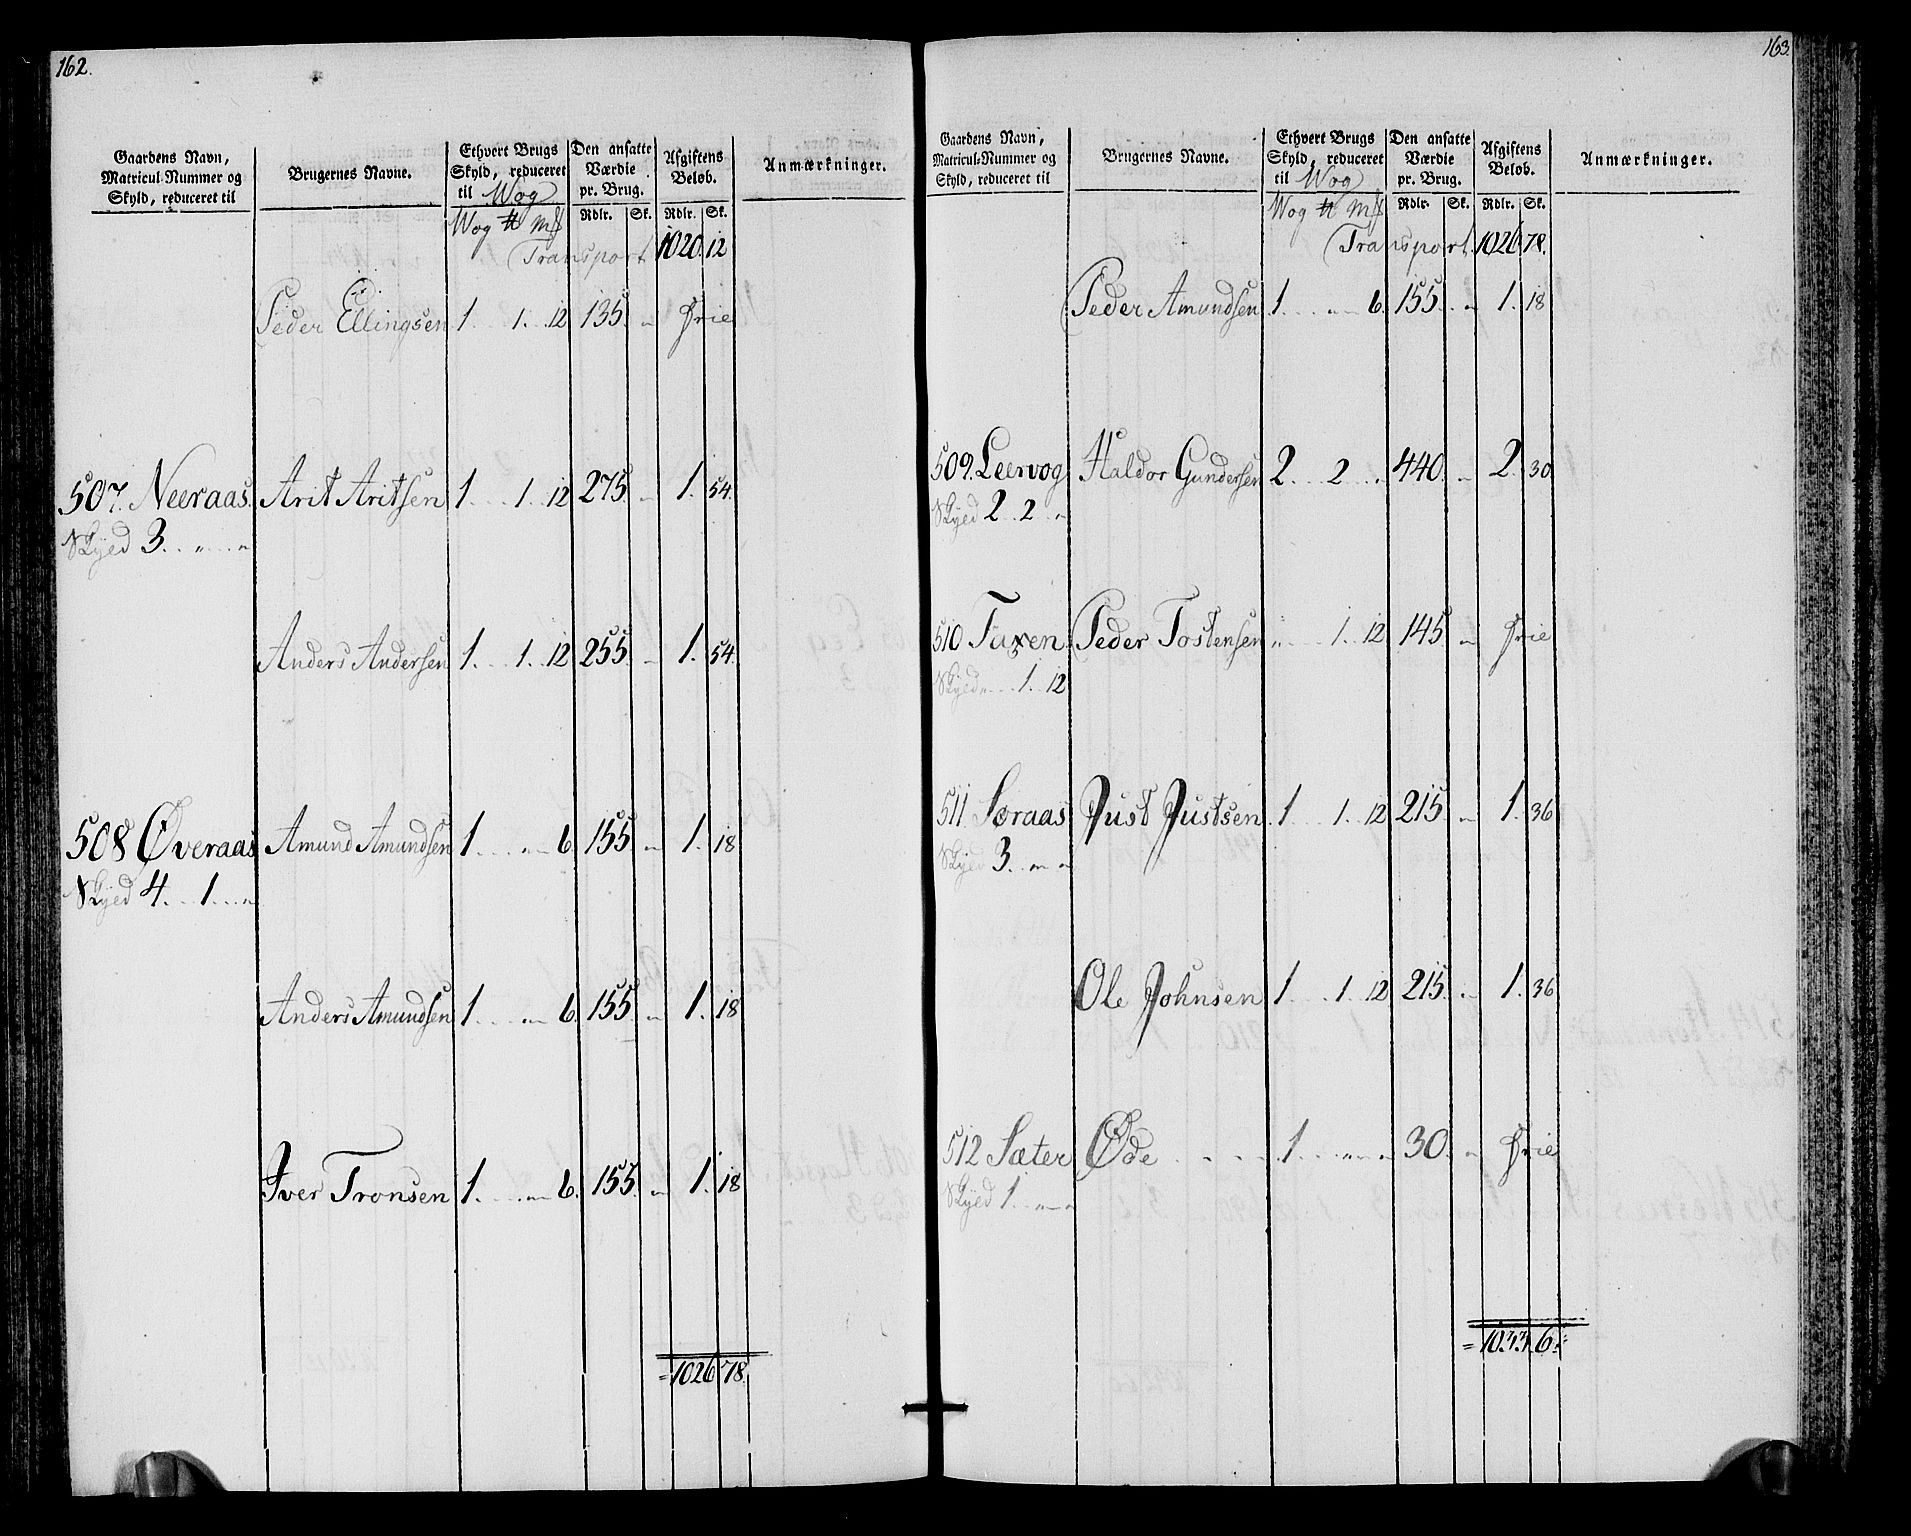 162.
Gaardens Navn, Matricul-Nummer og Skyld, reduceret til | Brugernes Navne. | Ethvert Brugs Skyld, reduceret til Wog | Den ansatte Værdie pr. Brug. | Afgiftens Beløb. | Anmærkninger.
Wog ℔ M𝔏 | Rdlr. Sk. | Rdlr. Sk.
Transport 1020. 12
Peder Ellingsen 1 . . 1 . 12 135 " frie
507. Neeraas. Arit Aritsen 1 . . 1 . 12 275. " 1. 54.
Skyld 3 . . " . . "
Anders Andersen 1 . . 1 . 12 255. " 1. 54.
508 Øveraas Amund Amundsen 1 . . " 6. 155. " 1. 18
Skyld 4 . . 1 . . "
Anders Amundsen 1 . . " 6. 155. " 1. 18
Iver Tronsen 1 . . " 6. 155. " 1. 18
= 1026 78.
163.
Gaardens Navn, Matricul-Nummer og Skyld, reduceret til | Brugernes Navne. | Ethvert Brugs Skyld, reduceret til Wog | Den ansatte Værdie pr. Brug. | Afgiftens Beløb. | Anmærkninger.
Wog ℔ M𝔏 | Rdlr. Sk. | Rdlr. Sk.
Transport 1026 78.
Peder Amundsen 1 . . " 6. 155. " 1. 18
509. Leervog Haldor Gundersen 2 . . 2 . . 440. " 2. 30
Skyld 2 . . 2 . . "
510 Taxen Peder Tostensen " . . 1 . 12 145 " frie
Skyld " . . 1 . 12
511. Soraas Just Justsen 1 . . 1 . 12 215. " 1. 36
Skyld 3 . . " "
Ole Johnsen 1 . . 1 . 12 215. " 1. 36
512 Sæter Øde . . . . 1 . . " " 30. " frie
Skyld 1 . . " "
= 1033. 6. =